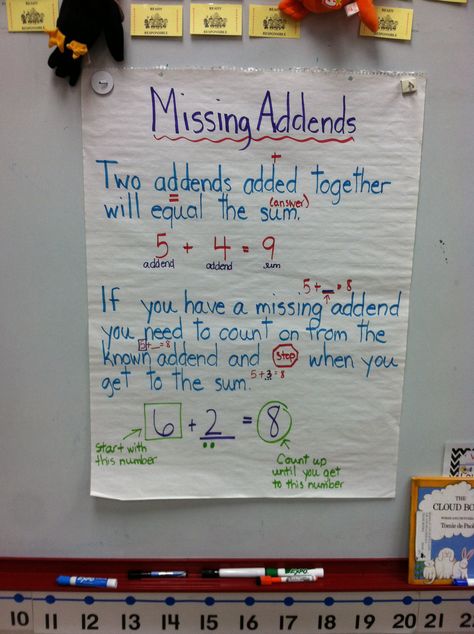 READY
RESPONSIBLE
RESPONSIBLE
RESPONSIBLE
RESPONSIBLE
Missing Addends
+
Two addends added together
= (answer)
will equal the sum.
5 + 4 = 9
addend addend sum
5 + __ = 8
If you have a missing addend
you need to count on from the
5 + __ = 8
known addend and STOP when you
get to the sum. 5 + 3 = 8
6 + 2 = 8
Start with
this number
Count up
until you get
to this number
THE
CLOUD BO
Tomie de Pao
EXPO
EXPO
EXPO
10 11 12 13 14 15 16 17 18 19 20 21 2